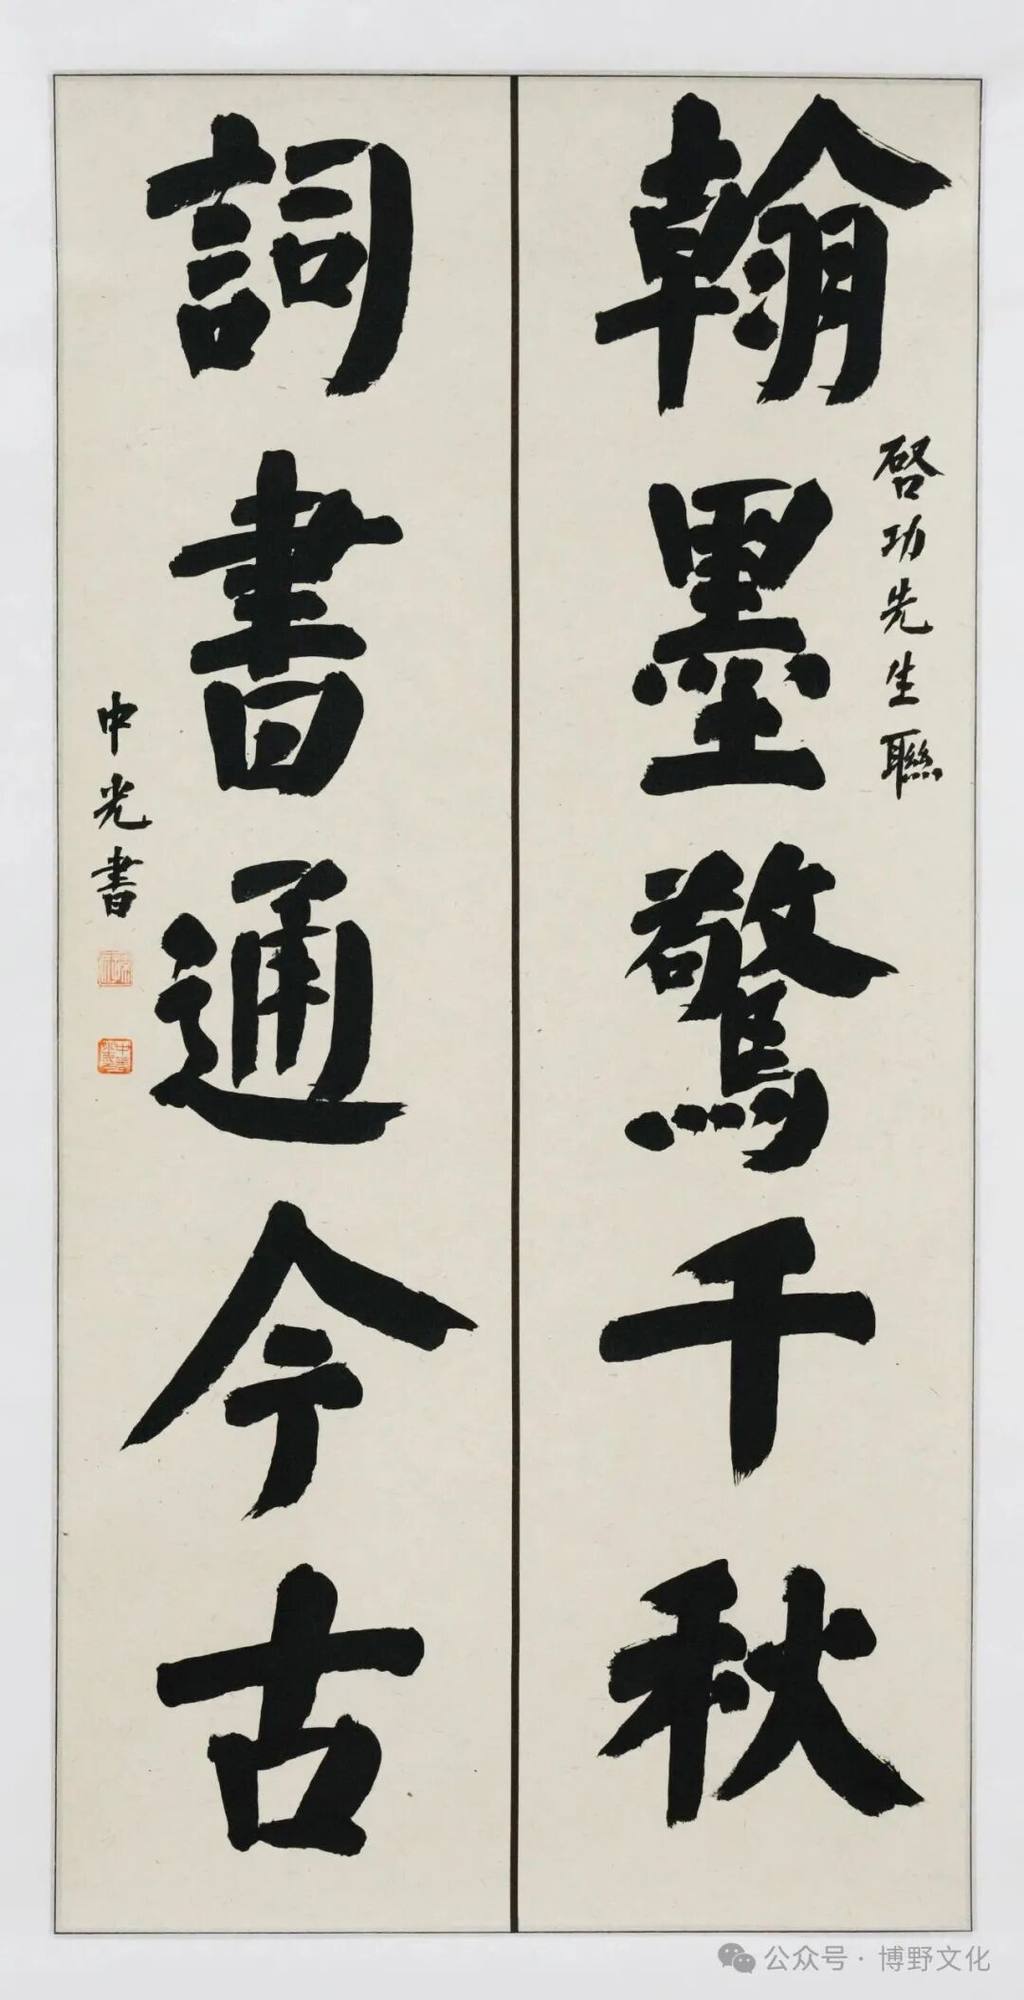 翰墨驚千秋
啓功先生聯
詞書通今古
中光書
公众号·博野文化